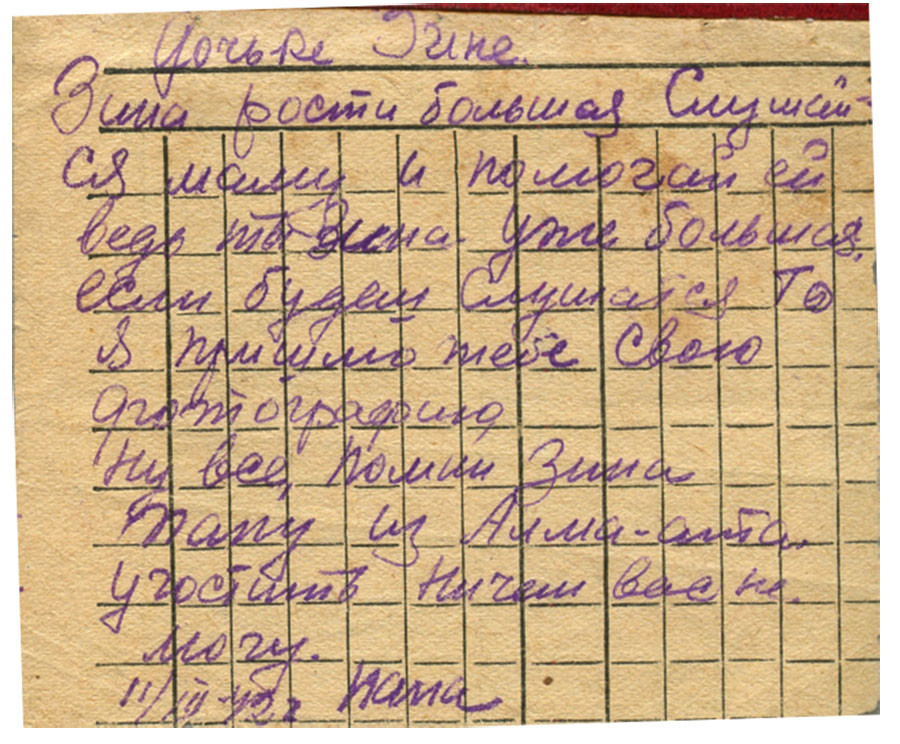 Дочьке Зине.
Зина рости большая Слушай-
ся маму и помогай ей
ведь ты Зина уже большая,
если будеш Слушатся То
я пришлю тебе свою
фготографию
Ну все, помни Зина
папу из Алма-ата.
угостить ничем вас не
могу.
11/III-42г папа